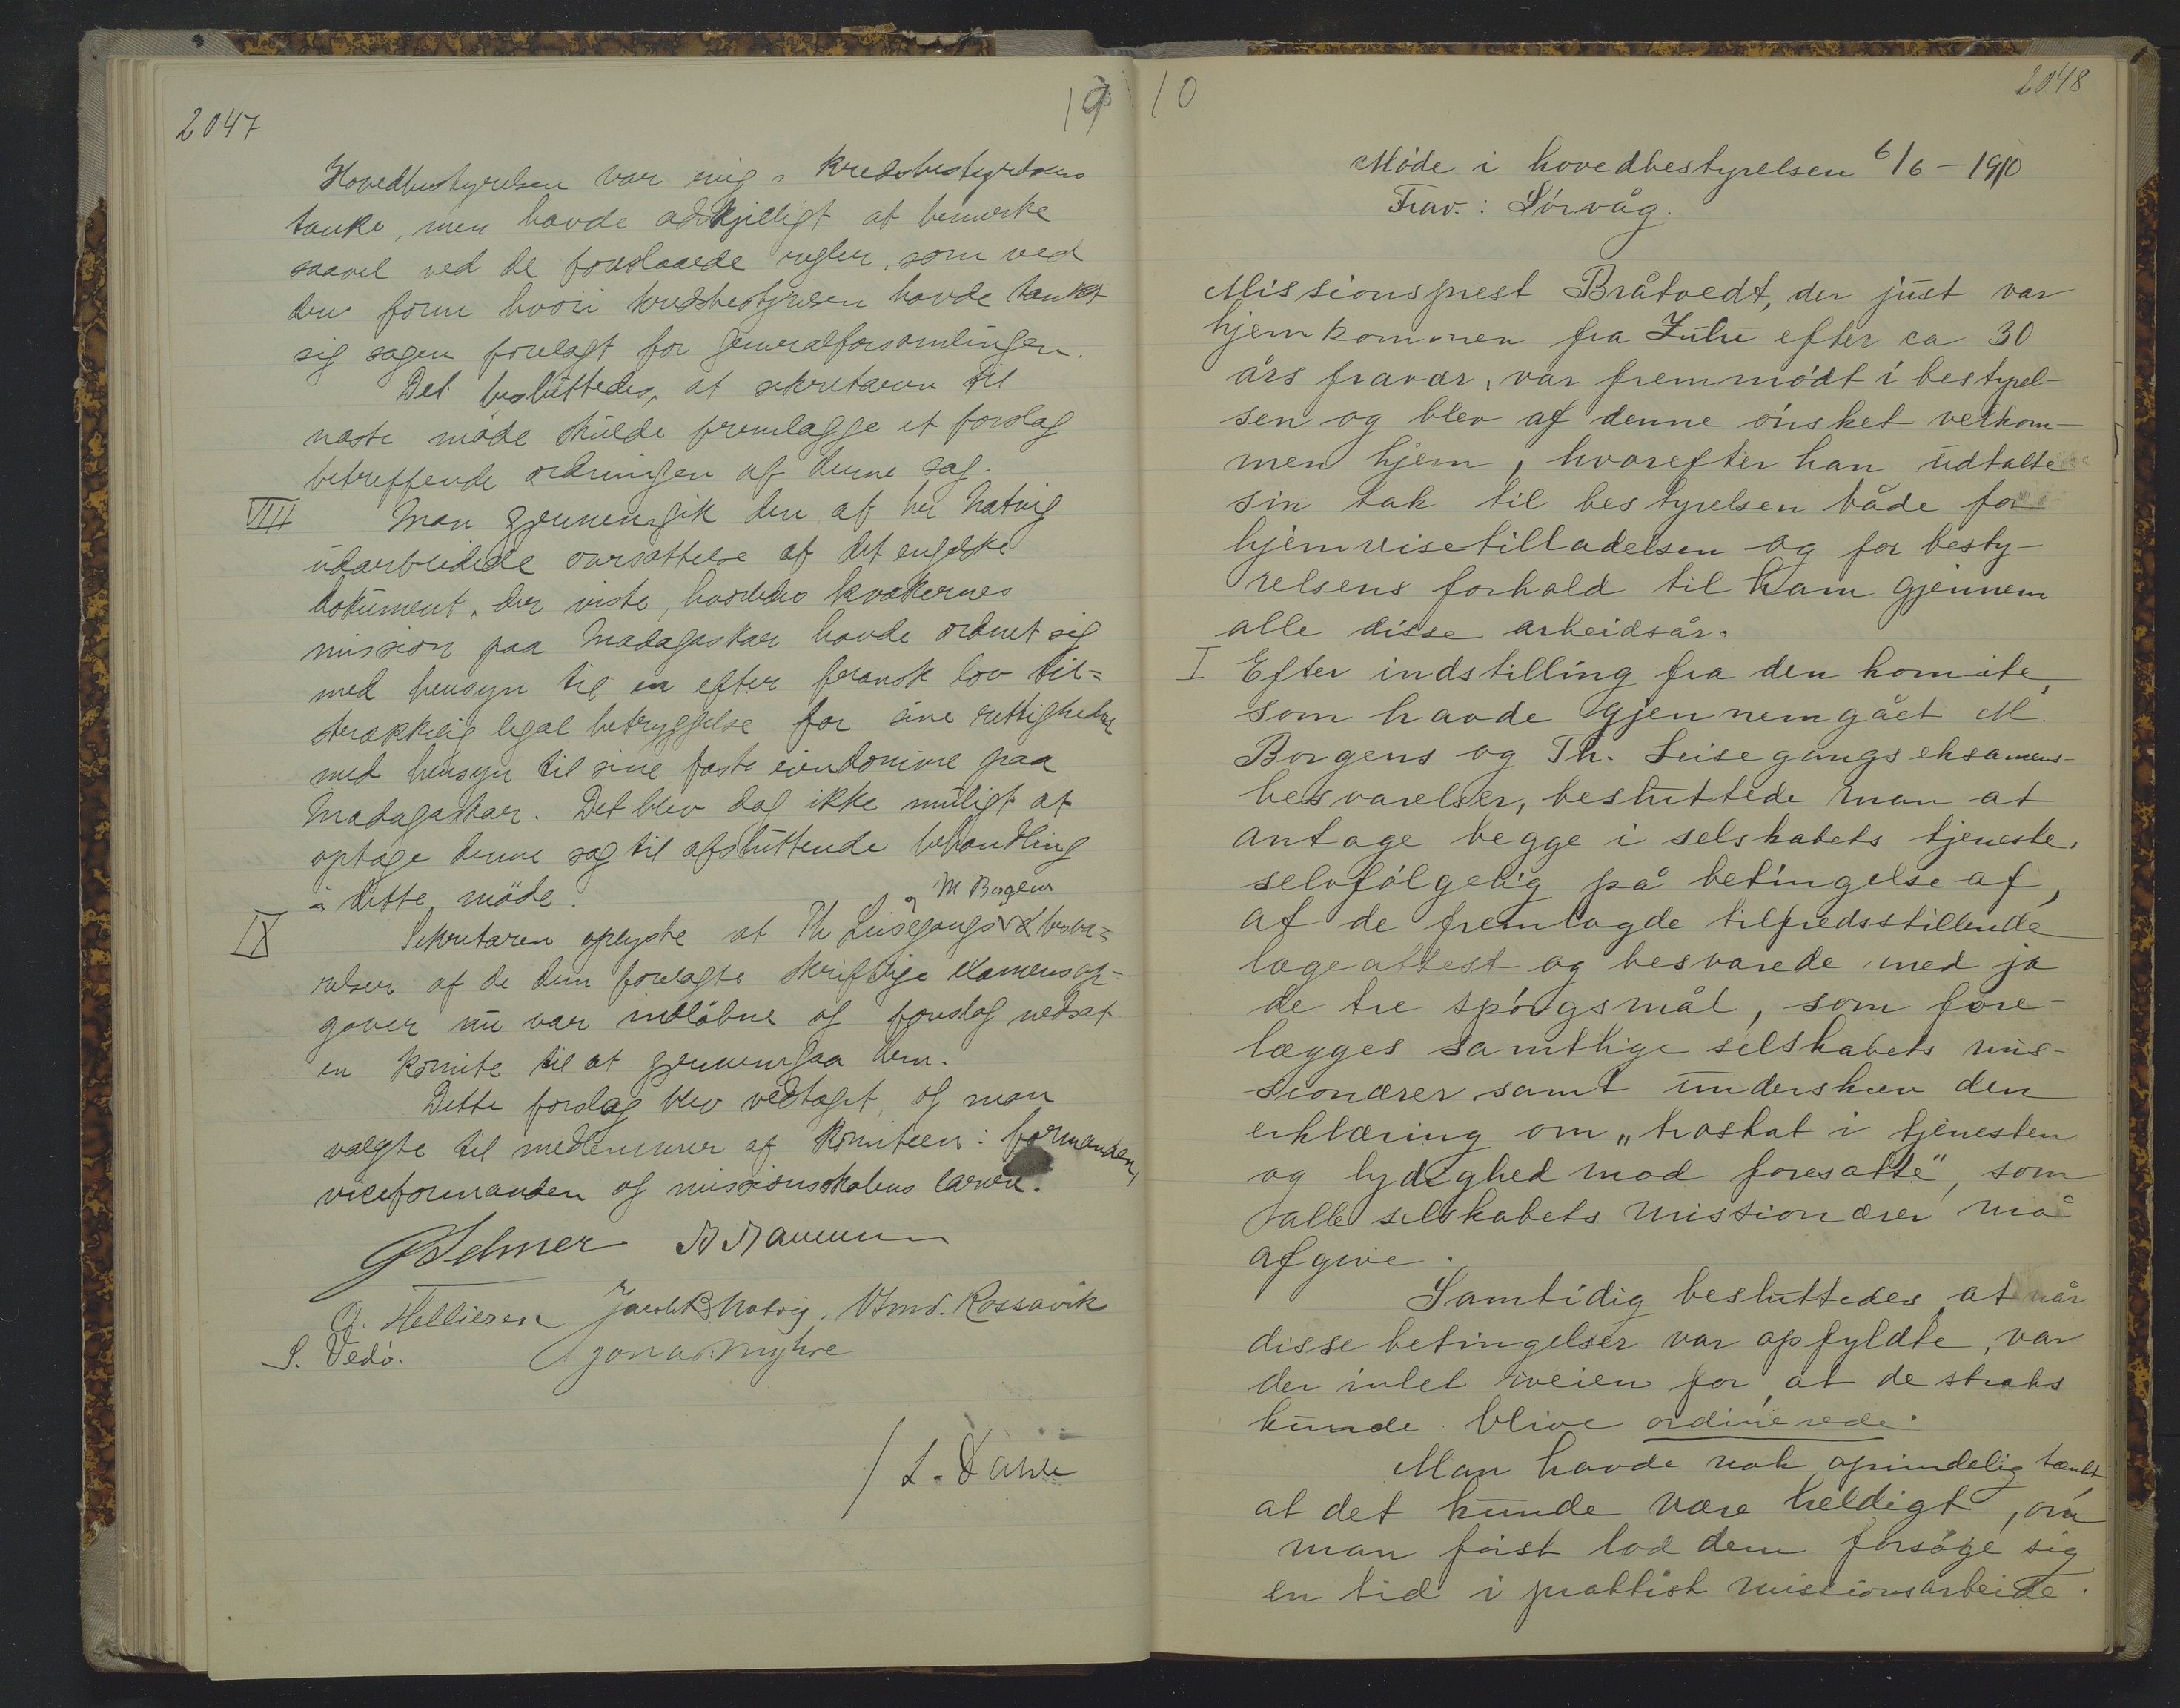 2047
19
Hovedbestyrelsen var enig i kredsbestyrelsens
tanke, men havde adskjilligt at bemerke
saavel ved de foreslaaede regler, som ved
den form hvori kredsbestyrelsen havde tænkt
sig sagen forelagt for generalforsamlingen.
Det besluttedes, at sekretæren til
næste møde skulde fremlægge et forslag
betreffende ordningen af denne sag.
VIII Man gjennemgik den af hr Natvig
udarbeidede oversættelse af det engelske
dokument, der viste, hvorledes kvækernes
mission paa Madagaskar havde ordnet sig
med hensyn til en efter fransk lov til=
strækkelig legal betryggelse for sine rettigheder
med hensyn til sine faste eiendomme paa
Madagaskar. Det blev dog ikke muligt at
optage denne sag til afsluttende behandling
i dette møde.
og M Borgens
IX Sekretæren oplyste at Th Leisegangs besva=
relser af de dem forelagte skriftlige examensop-
gaver nu var indløbne og foreslog nedsat
en komite til at gjennemgaa dem.
Dette forslag blev vedtaget, og man
valgte til medlemmer af komiteen: formanden,
viceformanden og missionsskolens lærere.
Selmer
O. Hellieren Jacob Natvig. Amd. Rossavik
S. Vedø. Jonas Myhre
/ L. Dahle
10
2048
Møde i hovedbestyrelsen 6/6 – 1910
Frav.: Sørvåg.
Missionsprest Bråtvedt, der just var
hjemkommen fra Zulu efter ca 30
års fravær, var fremmødt i bestyrel-
sen og blev af denne ønsket velkom-
men hjem, hvorefter han udtalte
sin tak til bestyrelsen både for
hjemreisetilladelsen og for besty-
relsens forhold til ham gjennem
alle disse arbeidsår.
I Efter indstilling fra den komite,
som havde gjennemgået M.
Borgens og Th. Leisegangs eksamens-
besvarelser, besluttede man at
antage begge i selskabets tjeneste,
selvfølgelig på betingelse af,
at de fremlagde tilfredsstillende
lægeattest og besvarede med ja
de tre spørgsmål, som fore-
lægges samtlige selskabets mis-
sionærer samt underskrev den
erklæring om „troskab i tjenesten
og lydighed mod foresatte", som
alle selskabets missionærer må
afgive.
Samtidig besluttedes, at når
disse betingelser var opfyldte, var
der intet iveien for, at de straks
kunde blive ordinerede.
Man havde nok oprindelig tænkt,
at det kunde være heldigt, om
man først lod dem forsøge sig
en tid i praktisk missionsarbeide.